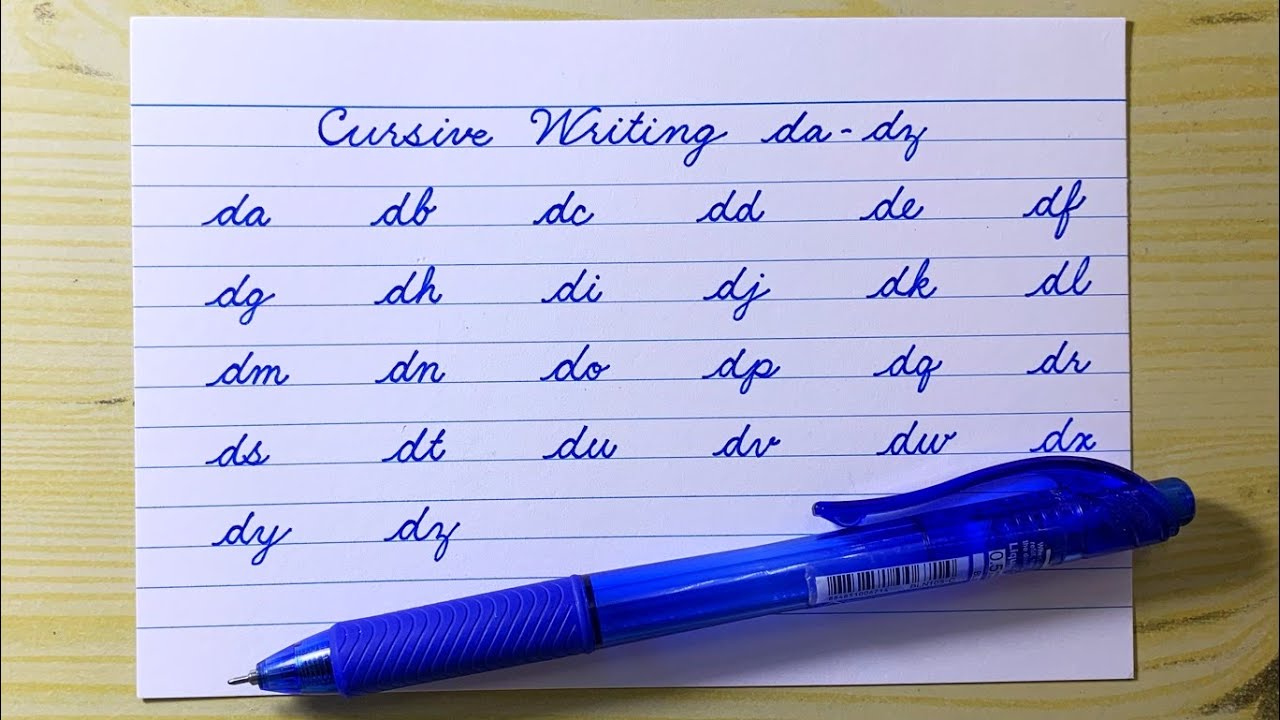 Cursive Writing da-dz
da db dc dd de df
dg dh di dj dk dl
dm dn do dp dq dr
ds dt du dv dw dx
dy dz
0.5